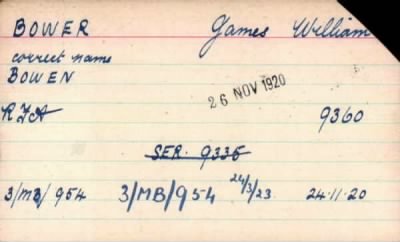 BOWER James William
correct name
BOWEN
26 NOV 1920
RFA 9360
SER. 9335
3/MB/954 3/MB/954 24/3/23 24.11.20